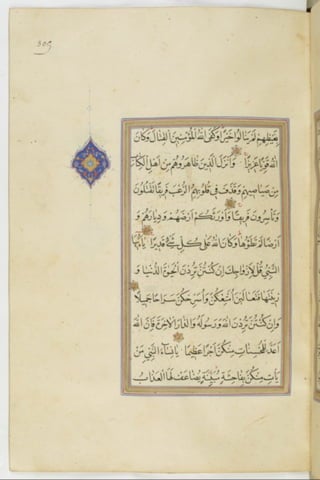 305
بِغَيْظِهِمْ لَمْ يَنَالُوا خَيْرًا وَكَفَى اللَّهُ الْمُؤْمِنِينَ الْقِتَالَ وَكَانَ
اللَّهُ قَوِيًّا عَزِيزًا وَأَنْزَلَ الَّذِينَ ظَاهَرُوهُمْ مِنْ أَهْلِ الْكِتَابِ
مِنْ صَيَاصِيهِمْ وَقَذَفَ فِي قُلُوبِهِمُ الرُّعْبَ فَرِيقًا تَقْتُلُونَ
وَتَأْسِرُونَ فَرِيقًا وَأَوْرَثَكُمْ أَرْضَهُمْ وَدِيَارَهُمْ وَ
أَرْضًا لَمْ تَطَئُوهَا وَكَانَ اللَّهُ عَلَى كُلِّ شَيْءٍ قَدِيرًا يَا أَيُّهَا
النَّبِيُّ قُلْ لِأَزْوَاجِكَ إِنْ كُنْتُنَّ تُرِدْنَ الْحَيَوةَ الدُّنْيَا وَ
زِينَتَهَا فَتَعَالَيْنَ أُمَتِّعْكُنَّ وَأُسَرِّحْكُنَّ سَرَاحًا جَمِيلًا
وَإِنْ كُنْتُنَّ تُرِدْنَ اللَّهَ وَرَسُولَهُ وَالدَّارَ الْآخِرَةَ فَإِنَّ اللَّهَ
أَعَدَّ لِلْمُحْسِنَاتِ مِنْكُنَّ أَجْرًا عَظِيمًا يَا نِسَاءَ النَّبِيِّ مَنْ
يَأْتِ مِنْكُنَّ بِفَاحِشَةٍ مُبَيِّنَةٍ يُضَاعَفْ لَهَا الْعَذَابُ